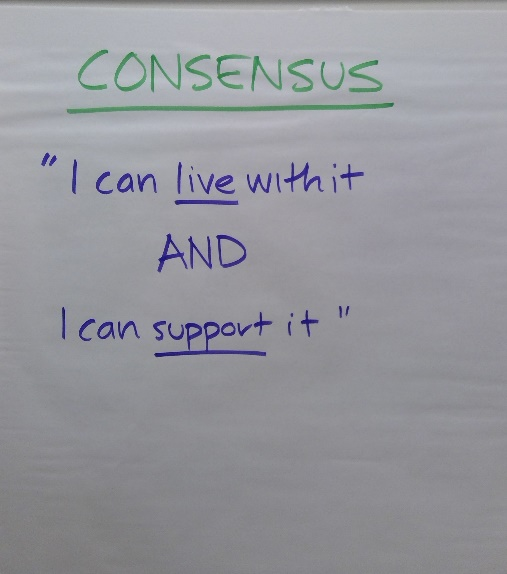 CONSENSUS
"I can live with it
AND
I can support it"